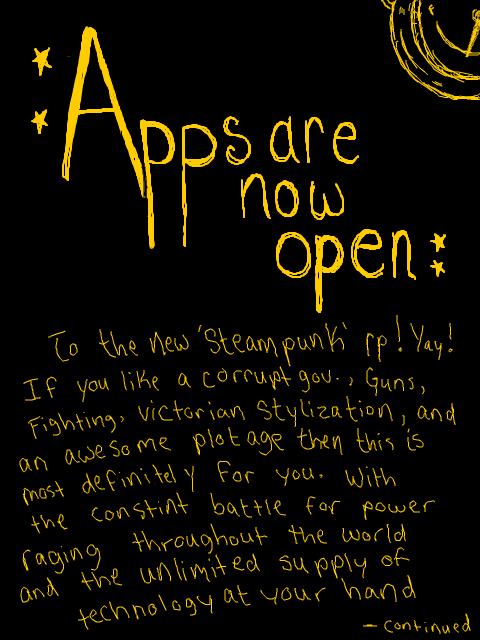 Apps are
now
open
To the new 'Steampunk' rp! Yay!
If you like a corrupt gov., Guns,
Fighting, victorian stylization, and
an awesome plot age then this is
most definitely for you. With
the constint battle for power
raging throughout the world
and the unlimited supply of
technology at your hand
- continued